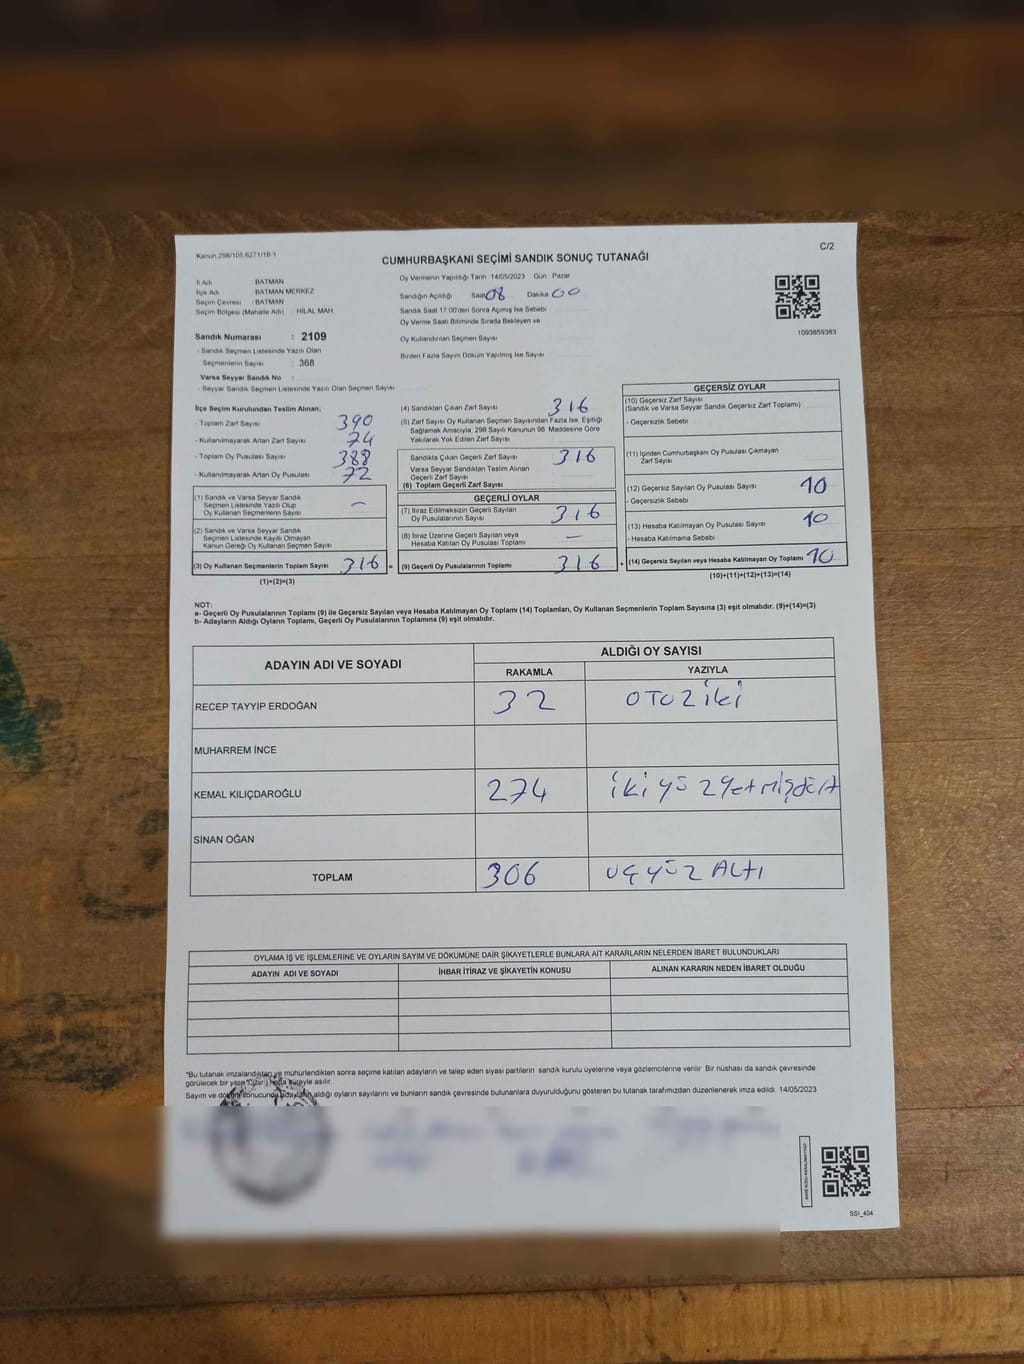 Kanun 298/105 6271/18-1
C/2
CUMHURBAŞKANI SEÇİMİ SANDIK SONUÇ TUTANAĞI
İl Adı : BATMAN
İlçe Adı : BATMAN MERKEZ
Seçim Çevresi : BATMAN
Seçim Bölgesi (Mahalle Adı) HİLAL MAH.
Oy Vermenin Yapıldığı Tarih 14/05/2023 Gün Pazar
Sandığın Açıldığı Saat 08 Dakika 00
Sandık Saat 17.00'den Sonra Açılmış İse Sebebi
Oy Verme Saati Bitiminde Sırada Bekleyen ve
Oy Kullandırılan Seçmen Sayısı
Birden Fazla Sayım Döküm Yapılmış İse Sayısı
1093859383
Sandık Numarası : 2109
- Sandık Seçmen Listesinde Yazılı Olan
Seçmenlerin Sayısı : 368
Varsa Seyyar Sandık No :
- Seyyar Sandık Seçmen Listesinde Yazılı Olan Seçmen Sayısı
İlçe Seçim Kurulundan Teslim Alınan;
- Toplam Zarf Sayısı 390
- Kullanılmayarak Artan Zarf Sayısı 74
- Toplam Oy Pusulası Sayısı 388
- Kullanılmayarak Artan Oy Pusulası 72
(1) Sandık ve Varsa Seyyar Sandık
Seçmen Listesinde Yazılı Olup
Oy Kullanan Seçmenlerin Sayısı —
(2) Sandık ve Varsa Seyyar Sandık
Seçmen Listesinde Kayıtlı Olmayan
Kanun Gereği Oy Kullanan Seçmen Sayısı
(3) Oy Kullanan Seçmenlerin Toplam Sayısı 316 =
(1)+(2)=(3)
(4) Sandıktan Çıkan Zarf Sayısı 316
(5) Zarf Sayısı Oy Kullanan Seçmen Sayısından Fazla İse, Eşitliği
Sağlamak Amacıyla, 298 Sayılı Kanunun 98. Maddesine Göre
Yakılarak Yok Edilen Zarf Sayısı
Sandıkta Çıkan Geçerli Zarf Sayısı 316
Varsa Seyyar Sandıktan Teslim Alınan
Geçerli Zarf Sayısı
(6) Toplam Geçerli Zarf Sayısı
GEÇERLİ OYLAR
(7) İtiraz Edilmeksizin Geçerli Sayılan
Oy Pusulalarının Sayısı 316
(8) İtiraz Üzerine Geçerli Sayılan veya
Hesaba Katılan Oy Pusulası Toplamı —
(9) Geçerli Oy Pusulalarının Toplamı 316 +
GEÇERSİZ OYLAR
(10) Geçersiz Zarf Sayısı
(Sandık ve Varsa Seyyar Sandık Geçersiz Zarf Toplamı)
- Geçersizlik Sebebi
(11) İçinden Cumhurbaşkanı Oy Pusulası Çıkmayan
Zarf Sayısı
(12) Geçersiz Sayılan Oy Pusulası Sayısı 10
- Geçersizlik Sebebi
(13) Hesaba Katılmayan Oy Pusulası Sayısı 10
- Hesaba Katılmama Sebebi
(14) Geçersiz Sayılan veya Hesaba Katılmayan Oy Toplamı 10
(10)+(11)+(12)+(13)=(14)
NOT:
a- Geçerli Oy Pusulalarının Toplamı (9) ile Geçersiz Sayılan veya Hesaba Katılmayan Oy Toplamı (14) Toplamları, Oy Kullanan Seçmenlerin Toplam Sayısına (3) eşit olmalıdır. (9)+(14)=(3)
b- Adayların Aldığı Oyların Toplamı, Geçerli Oy Pusulalarının Toplamına (9) eşit olmalıdır.
ADAYIN ADI VE SOYADI
ALDIĞI OY SAYISI
RAKAMLA YAZIYLA
RECEP TAYYİP ERDOĞAN 32 OTUZ iki
MUHARREM İNCE
KEMAL KILIÇDAROĞLU 274 ikiyüz yetmişdört
SİNAN OĞAN
TOPLAM 306 UÇYÜZ ALTI
OYLAMA İŞ VE İŞLEMLERİNE VE OYLARIN SAYIM VE DÖKÜMÜNE DAİR ŞİKAYETLERLE BUNLARA AİT KARARLARIN NELERDEN İBARET BULUNDUKLARI
ADAYIN ADI VE SOYADI İHBAR İTİRAZ VE ŞİKAYETİN KONUSU ALINAN KARARIN NEDEN İBARET OLDUĞU
*Bu tutanak imzalandıktan ve mühürlendikten sonra seçime katılan adayların ve talep eden siyasi partilerin sandık kurulu üyelerine veya gözlemcilerine verilir. Bir nüshası da sandık çevresinde
görülecek bir yere 1 (bir) hafta süreyle asılır.
Sayım ve döküm sonucunda adayların aldığı oyların sayılarını ve bunların sandık çevresinde bulunanlara duyurulduğunu gösteren bu tutanak tarafımızdan düzenlenerek imza edildi. 14/05/2023
SSI_404